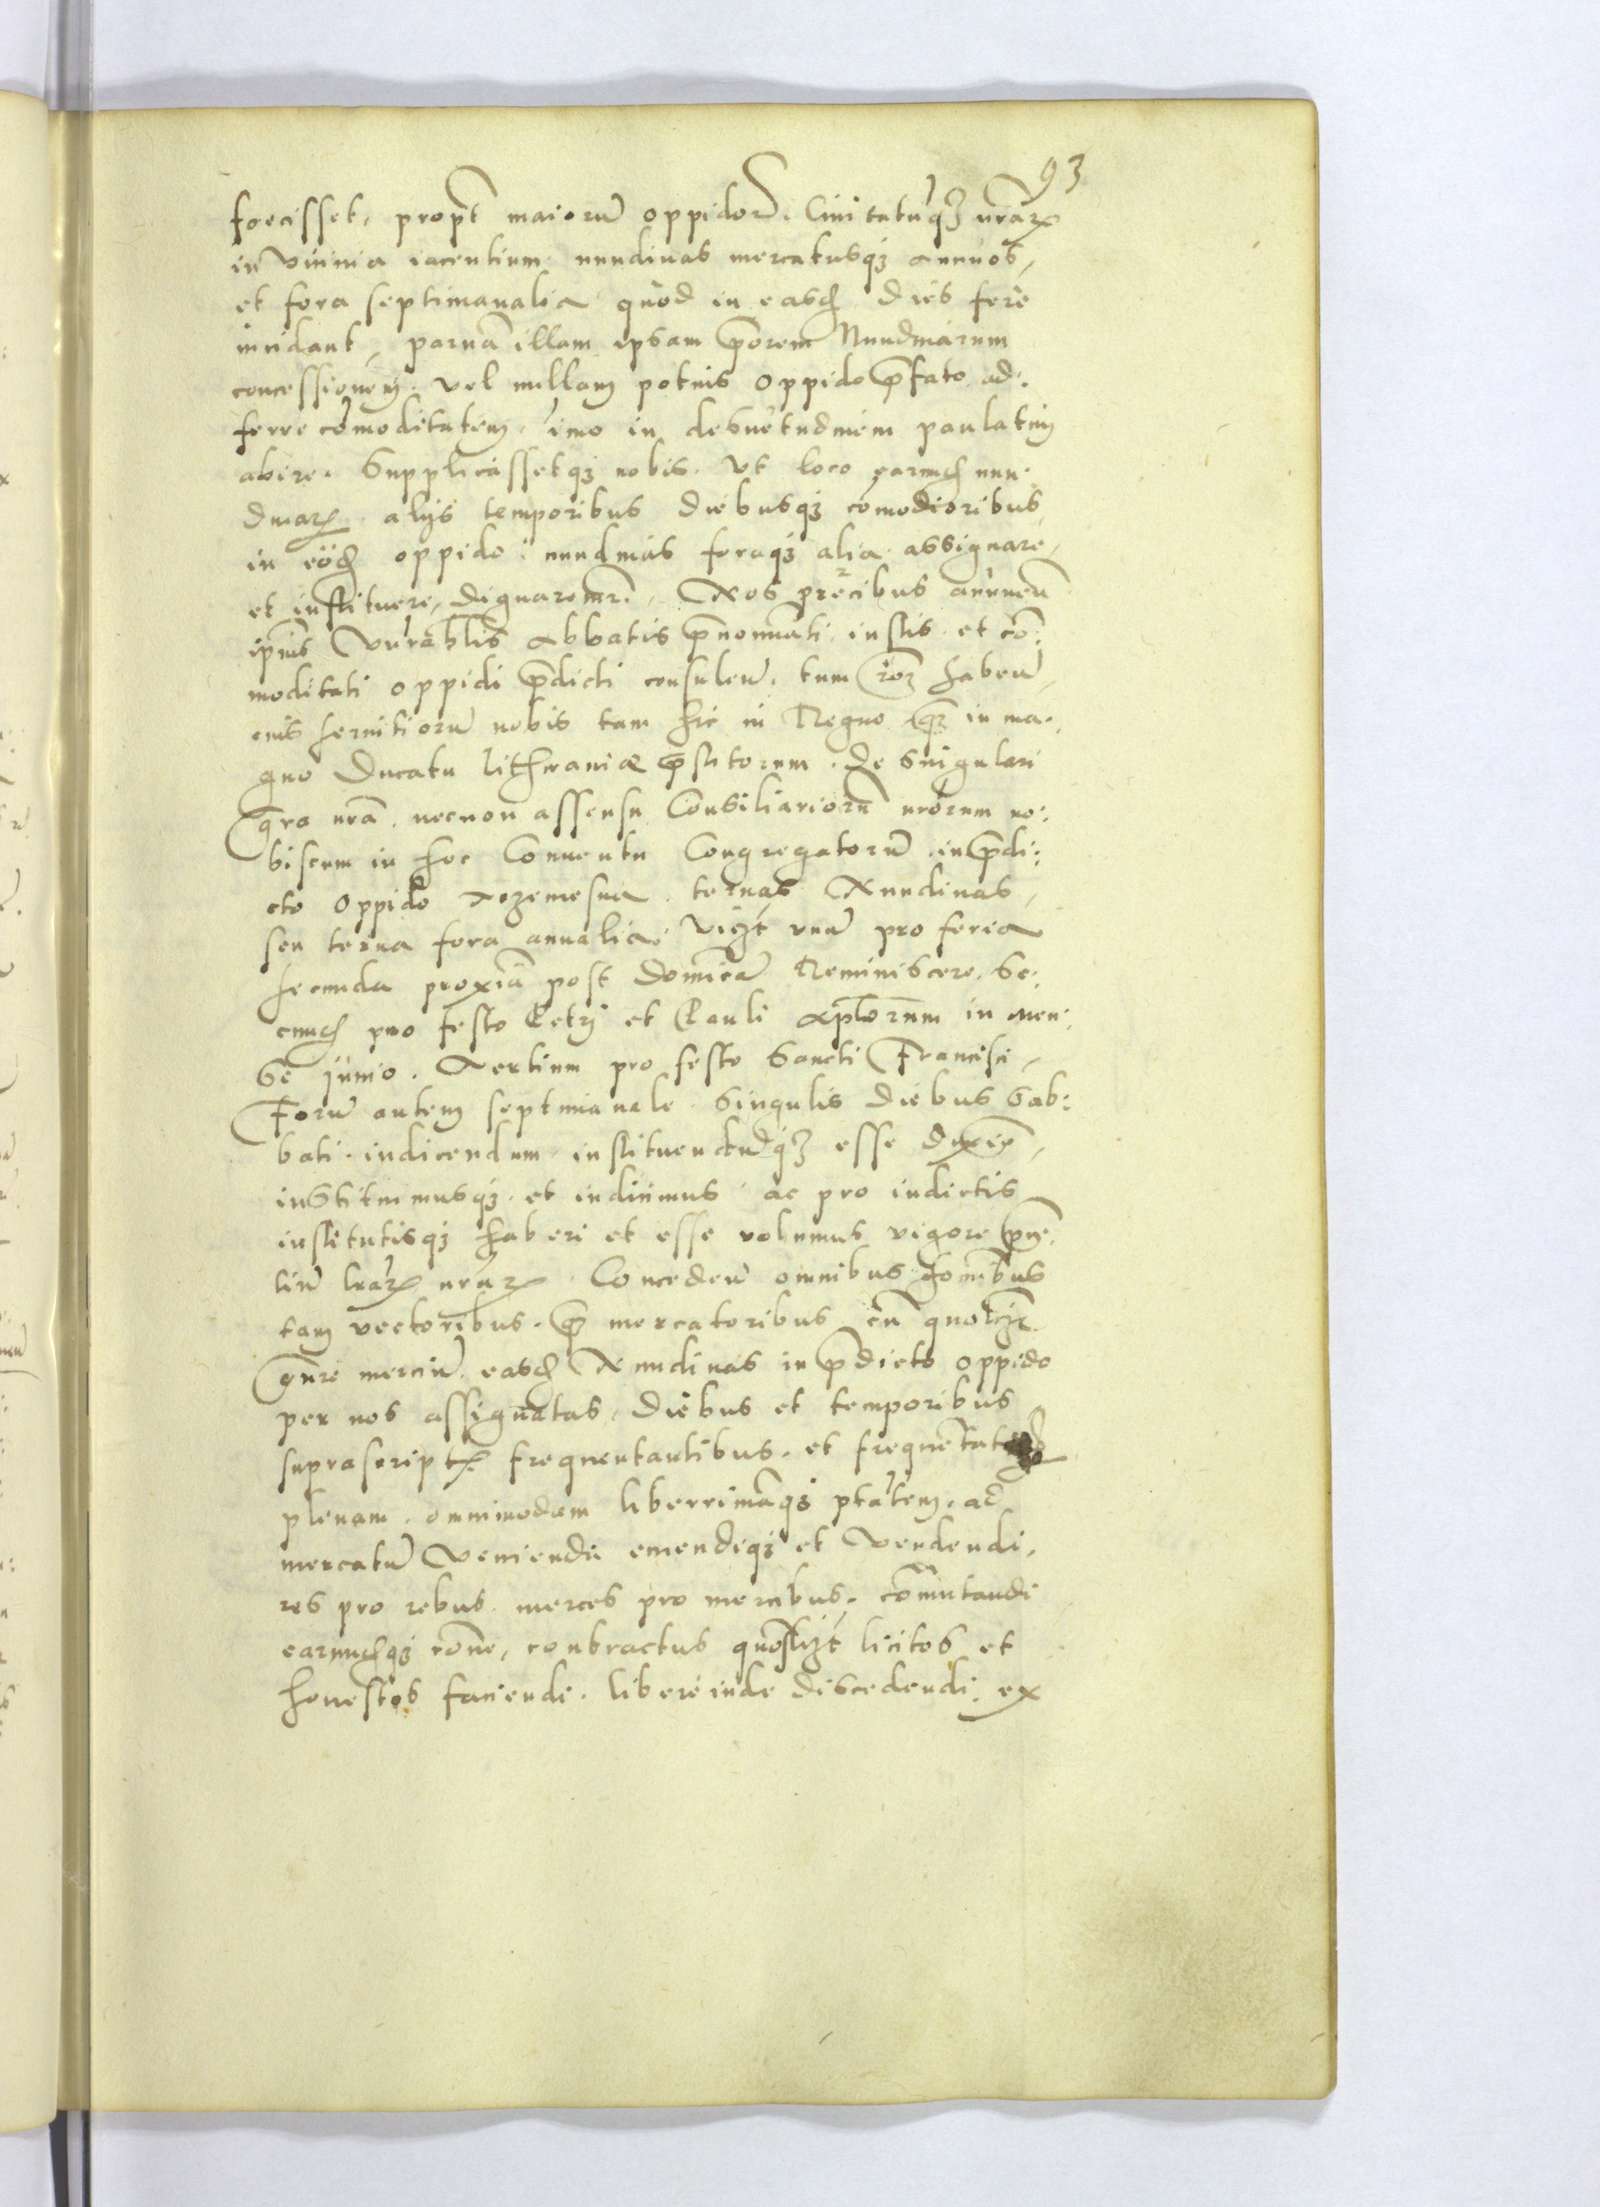 93
foecisset, propt maiorũ oppidorũ. Ciuitatũqʒ nr̃aꝝ
in vicinia iacentium nundinas mercatusqʒ annuos,
et fora septimanalia quod in easdẽ dies fere
incidant, paruã illam ipsam p̃orem Nundinarum
concessionem. vel nullam potuis oppido p̃fato ad:
ferre com̃oditatem. imo in desuetudinem paulatim
abire. Supplicassetqʒ nobis. Vt loco earundẽ nun:
dinaꝝ alijs temporibus diebusqʒ comodioribus,
in eodẽ oppido nundinas foraqʒ alia assignare,
et instituere, dignaremr̃. Nos precibus annueñ
ipsius Vn̄rablis Abbatis p̃nominati iustis et com̃:
moditati oppidi p̃dicti consuleñ. tum rõẽ habeñ,
eius seruitiorũ nobis tam hic in Regno q̃ in ma:
gno Ducatu lithuaniæ p̃stitorum. de singulari
gr̃a nr̃a. necnon assensu Consiliariorũ nr̃orum no:
biscum in hoc Conuentu Congregatorũ. in p̃di:
cto oppido rozemesna ternas Nundinas,
seu terna fora annualia. Vizt vnũ pro feria
secunda proxiã post Domicã Reminiscere. Se:
cundẽ pro festo Petri et Pauli Apl̃orum in men:
se junio. Tertium pro festo Sancti Francisci,
Forũ autem septimanale singulis diebus Sab:
bati. indicendum instituendũqʒ esse duxim̃,
instituimusqʒ et indicimus ac pro indictis
institutisqʒ haberi et esse volumus vigore p̃n̄:
tiũ lr̃aꝝ nr̃aꝝ. Concedeñ omnibus hoĩbus
tam vectoribus. q̃ mercatoribus cũ quolizt
gn̄re merciũ. easdẽ Nundinas in p̃dicto oppido
per nos assignatas. diebus et temporibus
suprascriptꝭ frequentantibus. et frequẽtat
plenam. omnimodam liberrimãqʒ ptãtem. ad
mercatũ Veniendi emendiqʒ et Vendendi,
res pro rebus. merces pro mercibus. com̃utandi
earundẽqʒ rõne, contractus quoslizt licitos et
honestos faciendi. libere inde discedendi. ex